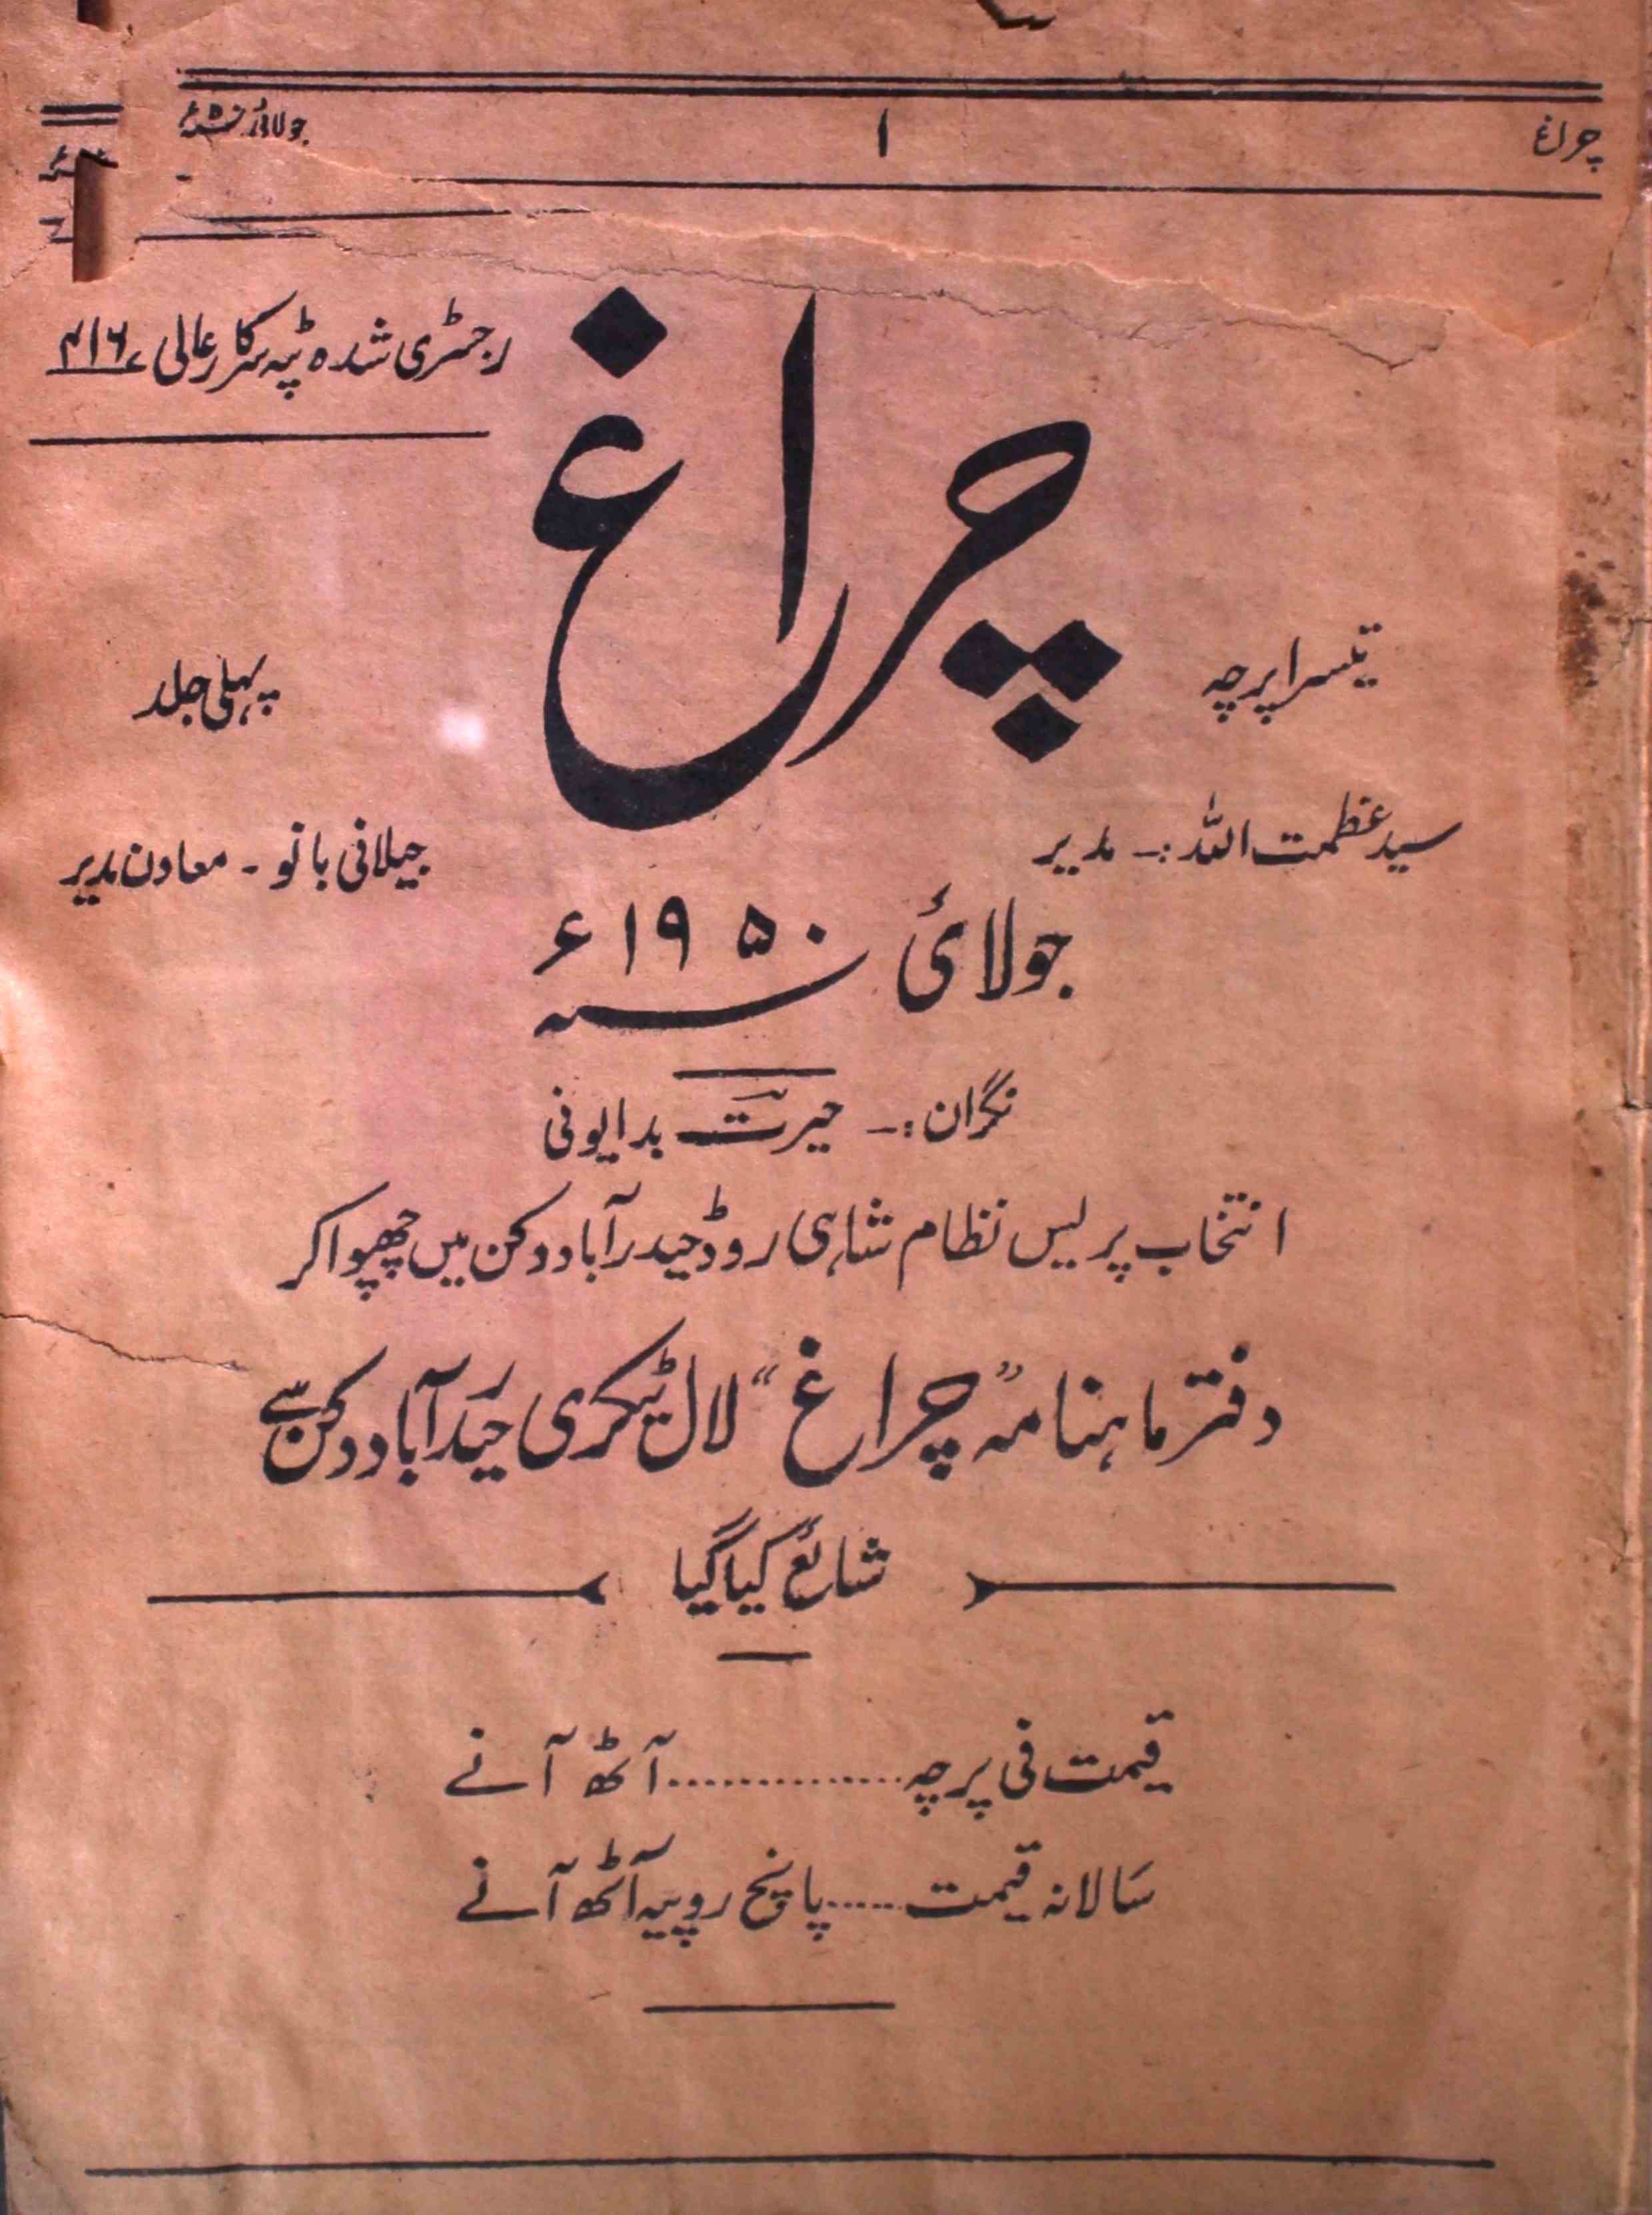 چراغ ۱ جولائی ۵۰ء
رجسٹری شدہ ٹپہ سرکار عالی ۴۱۶
چراغ
تیسرا پرچہ
پہلی جلد
سید عظمت اللہ :- مدیر
جیلانی بانو - معاون مدیر
جولائی ۱۹۵۰ء
نگران :- حیرت بدایونی
انتخاب پریس نظام شاہی روڈ حیدرآباد دکن میں چھپوا کر
دفتر ماہنامہ "چراغ" لال ٹیکری حیدرآباد دکن سے
شائع کیا گیا
قیمت فی پرچہ ............... آٹھ آنے
سالانہ قیمت ...... پانچ روپیہ آٹھ آنے